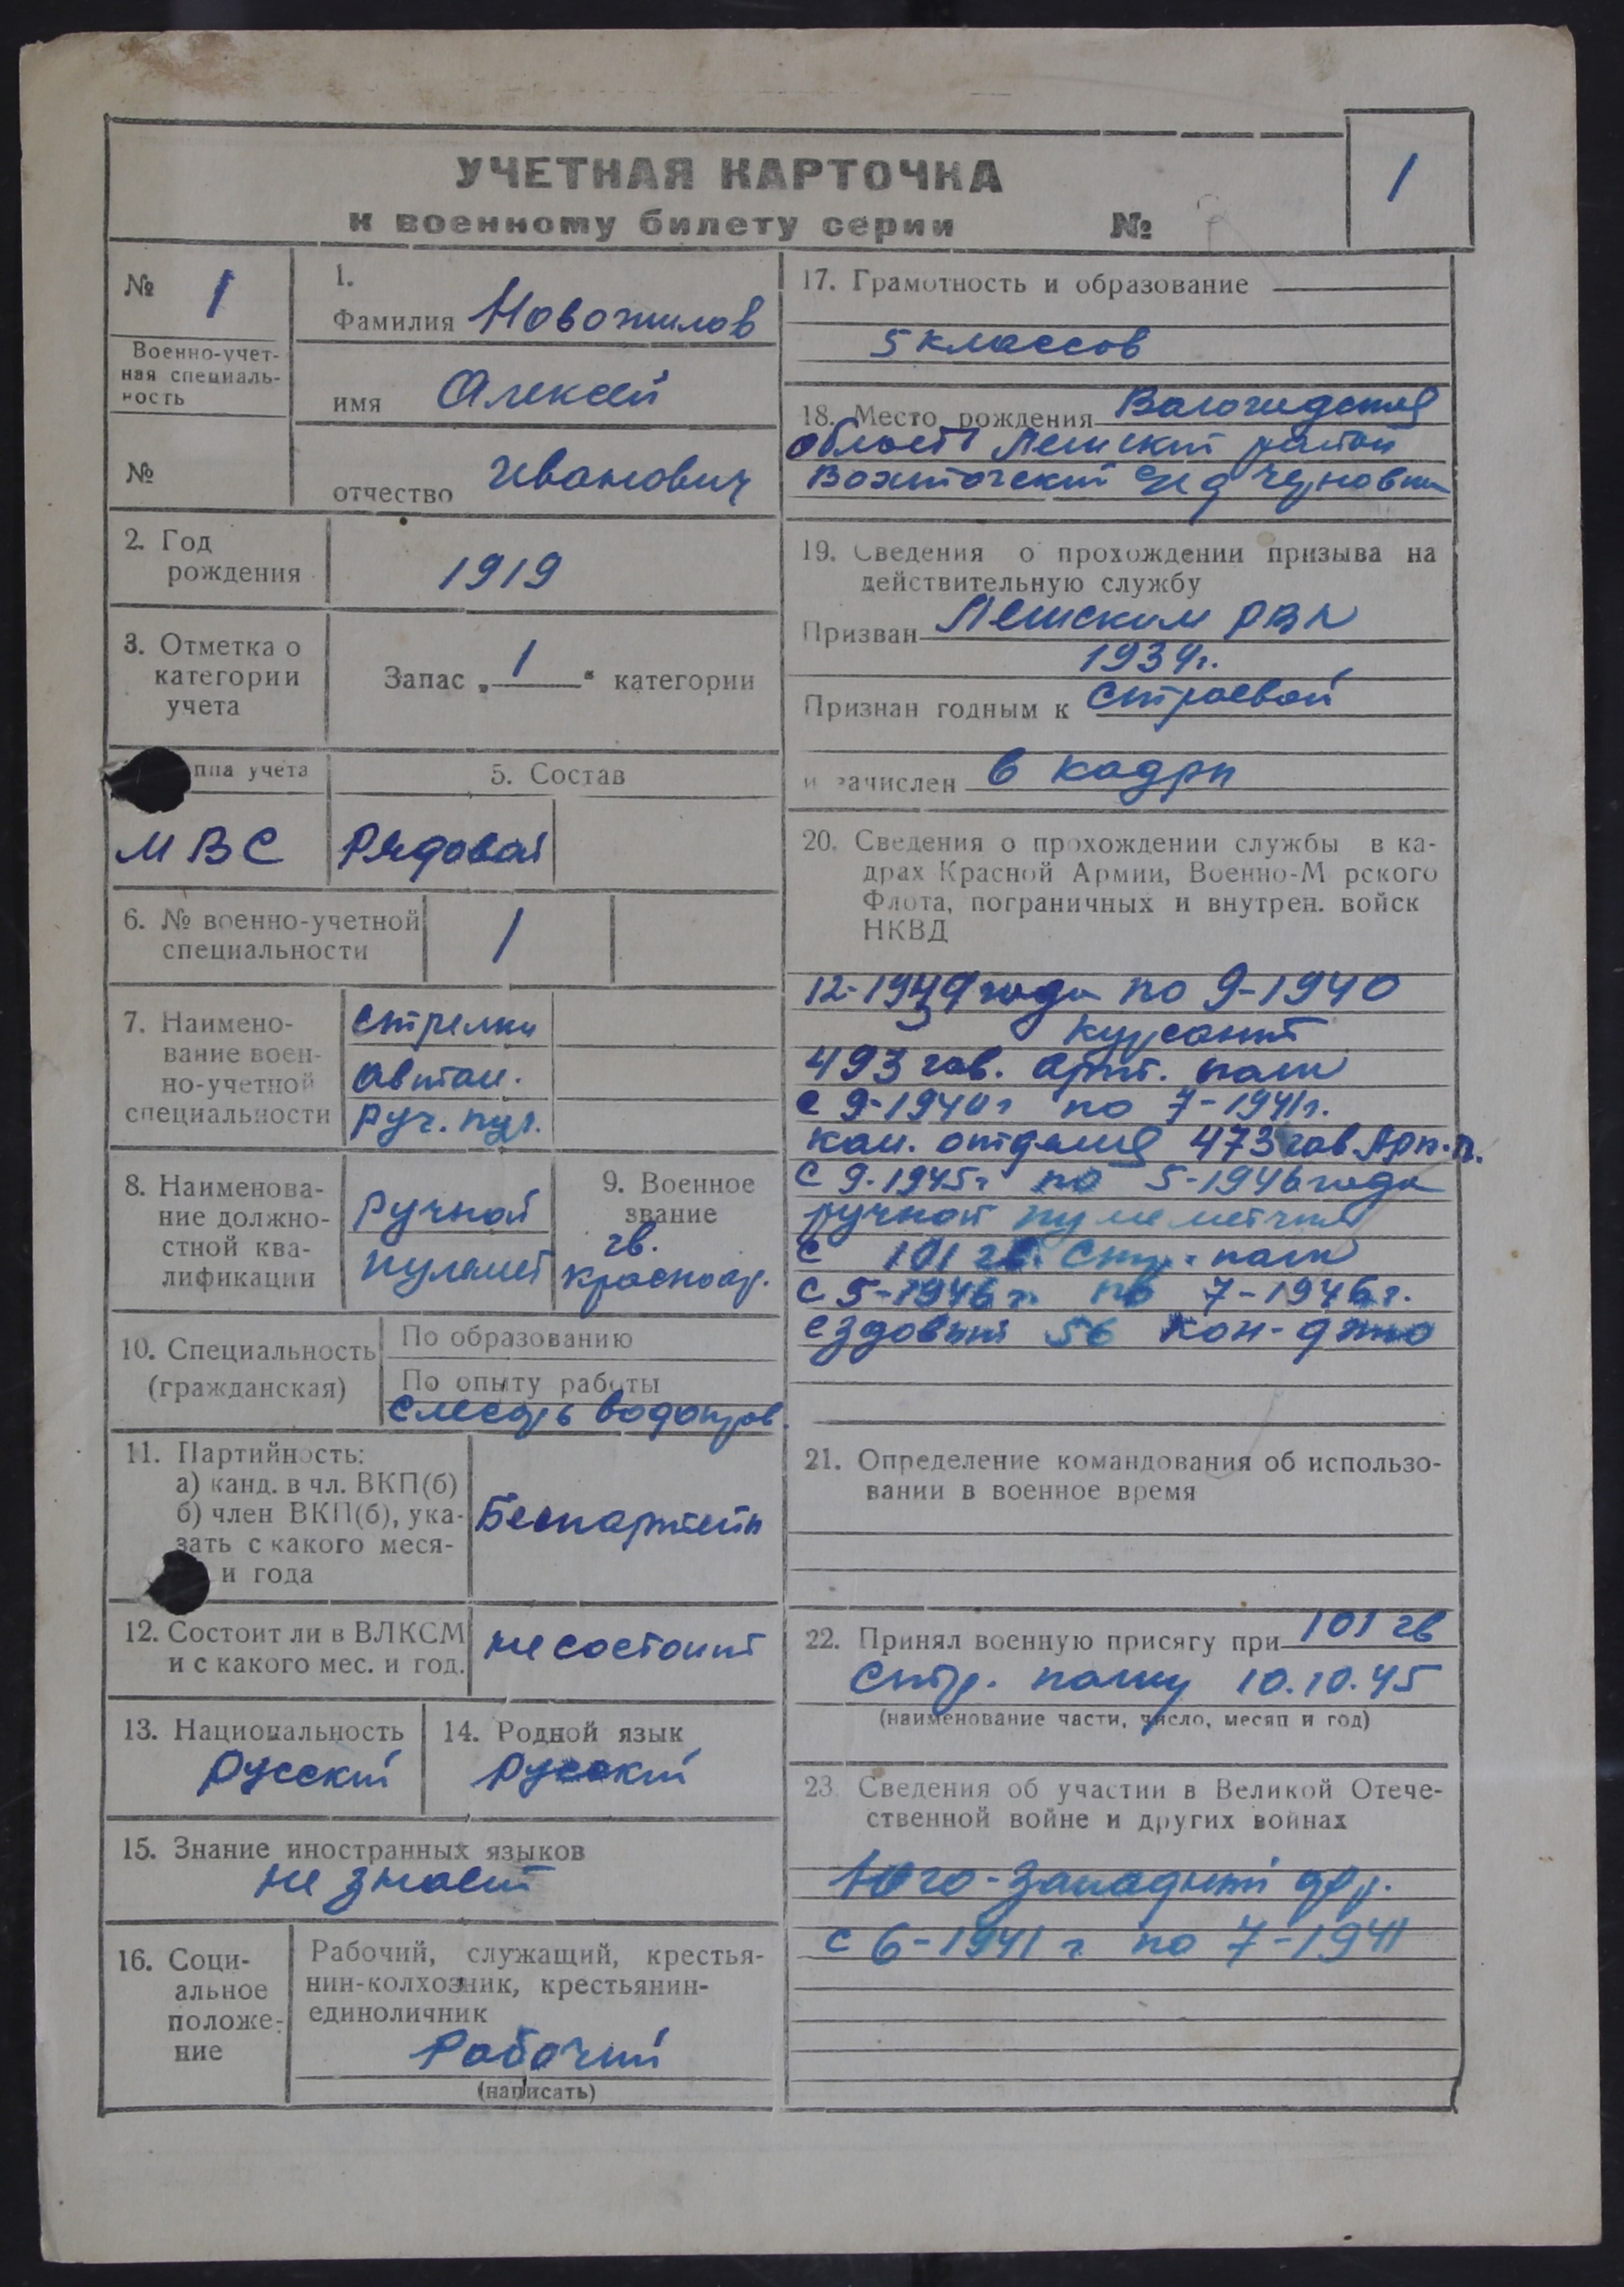 УЧЕТНАЯ КАРТОЧКА
к военному билету серии №
1
№ 1
Военно-учет-
ная специаль-
ность
№
1.
Фамилия Новожилов
имя Алексей
отчество Иванович
2. Год
рождения
1919
3. Отметка о
категории
учета
Запас „ 1 “ категории
ппа учета
МВС
5. Состав
Рядовой
6. № военно-учетной
специальности
1
7. Наимено-
вание воен-
но-учетной
специальности
Стрелки
автом.
руч. пул.
8. Наименова-
ние должно-
стной ква-
лификации
Ручной
пулемет
9. Военное
звание
гв.
красноар.
10. Специальность
(гражданская)
По образованию
По опыту работы
слесарь водопров.
11. Партийность:
а) канд. в чл. ВКП(б)
б) член ВКП(б), ука-
зать с какого меся-
и года
Беспартейн
12. Состоит ли в ВЛКСМ
и с какого мес. и год.
не состоит
13. Национальность
Русский
14. Родной язык
Русский
15. Знание иностранных языков
не знает
16. Соци-
альное
положе-
ние
Рабочий, служащий, крестья-
нин-колхозник, крестьянин-
единоличник
Рабочий
(написать)
17. Грамотность и образование
5 классов
18. Место рождения Вологодская
область Лешский район
с/с д Черновин
19. Сведения о прохождении призыва на
действительную службу
Призван Лешским РВК
1939г.
Признан годным к строевой
и зачислен в кадры
20. Сведения о прохождении службы в ка-
драх Красной Армии, Военно-М рского
Флота, пограничных и внутрен. войск
НКВД
12-1939 года по 9-1940
курсант
493 гав. арт. полк
с 9-1940г по 7-1941г.
ком. отделия 473 гав Арт.п.
с 9-1945г по 5-1946 года
ручной пулеметчик
с 101 гв. Стр. полк
с 5-1946г. по 7-1946г.
ездовый 56 кон-депо
21. Определение командования об использо-
вании в военное время
22. Принял военную присягу при 101 гв
Стр. полку 10.10.45
(наименование части, число, месяц и год)
23. Сведения об участии в Великой Отече-
ственной войне и других воинах
Юго-Западный фр.
с 6-1941г по 7-1941